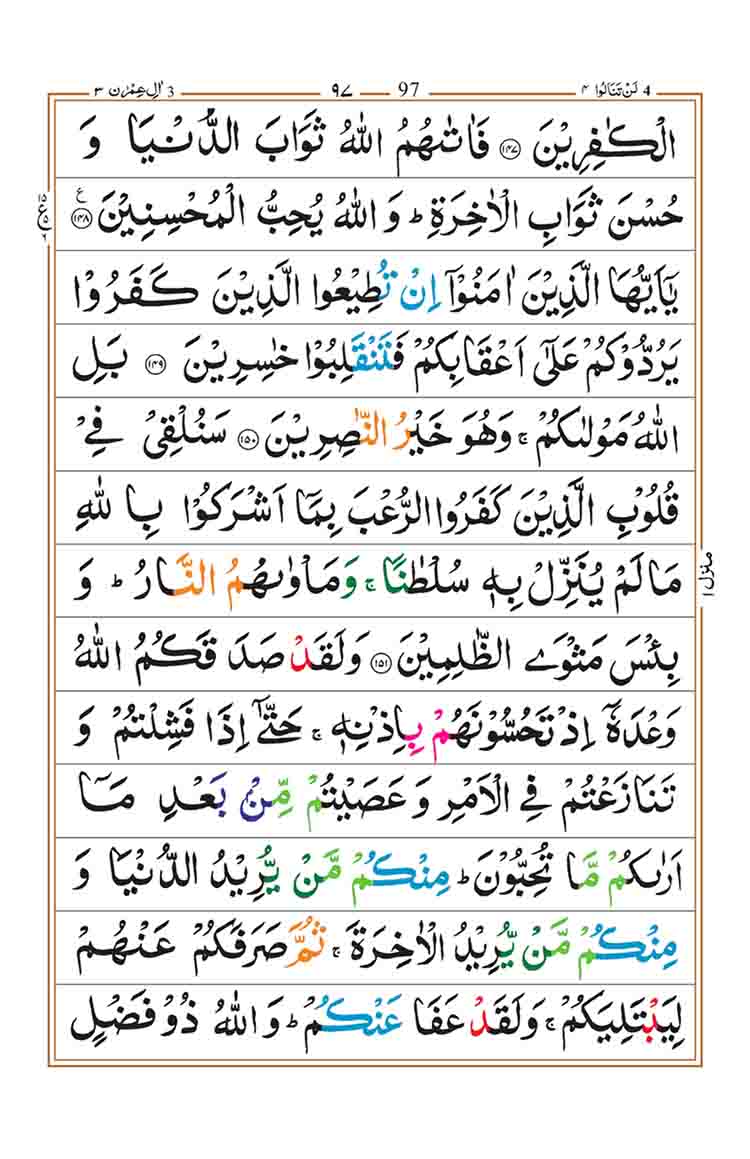 4 لَنْ تَنَالُوا ۴ 97 ۹۷ 3 اٰلِ عِمْرٰن ۳
الْكٰفِرِيْنَ ﴿۱۴۷﴾ فَاٰتٰىهُمُ اللّٰهُ ثَوَابَ الدُّنْيَا وَ
حُسْنَ ثَوَابِ الْاٰخِرَةِ ؕ وَ اللّٰهُ يُحِبُّ الْمُحْسِنِيْنَ ﴿۱۴۸﴾ ع
يٰۤاَيُّهَا الَّذِيْنَ اٰمَنُوْۤا اِنْ تُطِيْعُوا الَّذِيْنَ كَفَرُوْا
يَرُدُّوْكُمْ عَلٰۤى اَعْقَابِكُمْ فَتَنْقَلِبُوْا خٰسِرِيْنَ ﴿۱۴۹﴾ بَلِ
اللّٰهُ مَوْلٰىكُمْ ۚ وَهُوَ خَيْرُ النّٰصِرِيْنَ ﴿۱۵۰﴾ سَنُلْقِىْ فِىْ
قُلُوْبِ الَّذِيْنَ كَفَرُوا الرُّعْبَ بِمَاۤ اَشْرَكُوْا بِاللّٰهِ
مَا لَمْ يُنَزِّلْ بِهٖ سُلْطٰنًا ۚ وَمَاْوٰىهُمُ النَّارُ ؕ وَ
بِئْسَ مَثْوَى الظّٰلِمِيْنَ ﴿۱۵۱﴾ وَلَقَدْ صَدَقَكُمُ اللّٰهُ
وَعْدَهٗۤ اِذْ تَحُسُّوْنَهُمْ بِاِذْنِهٖ ۚ حَتّٰۤى اِذَا فَشِلْتُمْ وَ
تَنَازَعْتُمْ فِى الْاَمْرِ وَ عَصَيْتُمْ مِّنْۢ بَعْدِ مَاۤ
اَرٰىكُمْ مَّا تُحِبُّوْنَ ؕ مِنْكُمْ مَّنْ يُّرِيْدُ الدُّنْيَا وَ
مِنْكُمْ مَّنْ يُّرِيْدُ الْاٰخِرَةَ ۚ ثُمَّ صَرَفَكُمْ عَنْهُمْ
لِيَبْتَلِيَكُمْ ۚ وَلَقَدْ عَفَا عَنْكُمْ ؕ وَ اللّٰهُ ذُوْ فَضْلٍ
منزل ۱